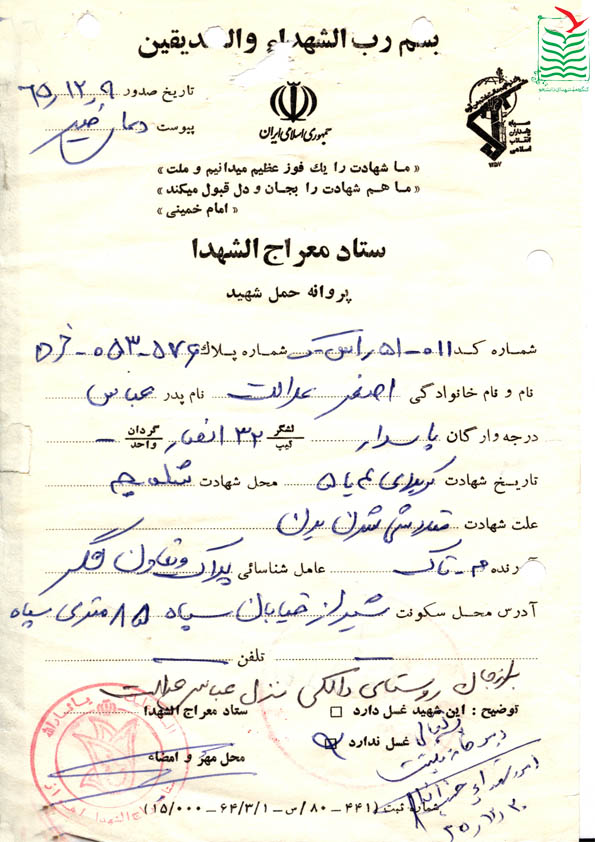 بسم رب الشهداء والصدیقین
تاریخ صدور ۶۵/۱۲/۹
پیوست
جمهوری اسلامی ایران
سپاه پاسداران انقلاب اسلامی
«ما شهادت را یك فوز عظیم میدانیم و ملت»
«ما هم شهادت را بجان و دل قبول میکند»
«امام خمینی»
ستاد معراج الشهدا
پروانه حمل شهید
شماره کد ۰۱۱-۵۱ شماره پلاك ۵۷۶-۰۵۳
نام و نام خانوادگی اصغر عدالت نام پدر عباس
درجه وارگان پاسدار لشگر تیپ ۳۲ انصار گردان واحد -
تاریخ شهادت کربلای ۴ یا ۵ محل شهادت شلمچه
علت شهادت متلاشی شدن بدن
آورنده عامل شناسائی پلاک و تعاون لشگر
آدرس محل سکونت شیراز خیابان سپاه ۸۵ متری سپاه
تلفن
برازجان روستای دالکی منزل عباس عدالت
توضیح : این شهید غسل دارد ستاد معراج الشهدا
غسل ندارد محل مهر و امضاء
شماره ثبت (۴۴۱ - ۸۰ / س - ۶۴/۳/۱ - ۱۵/۰۰۰)